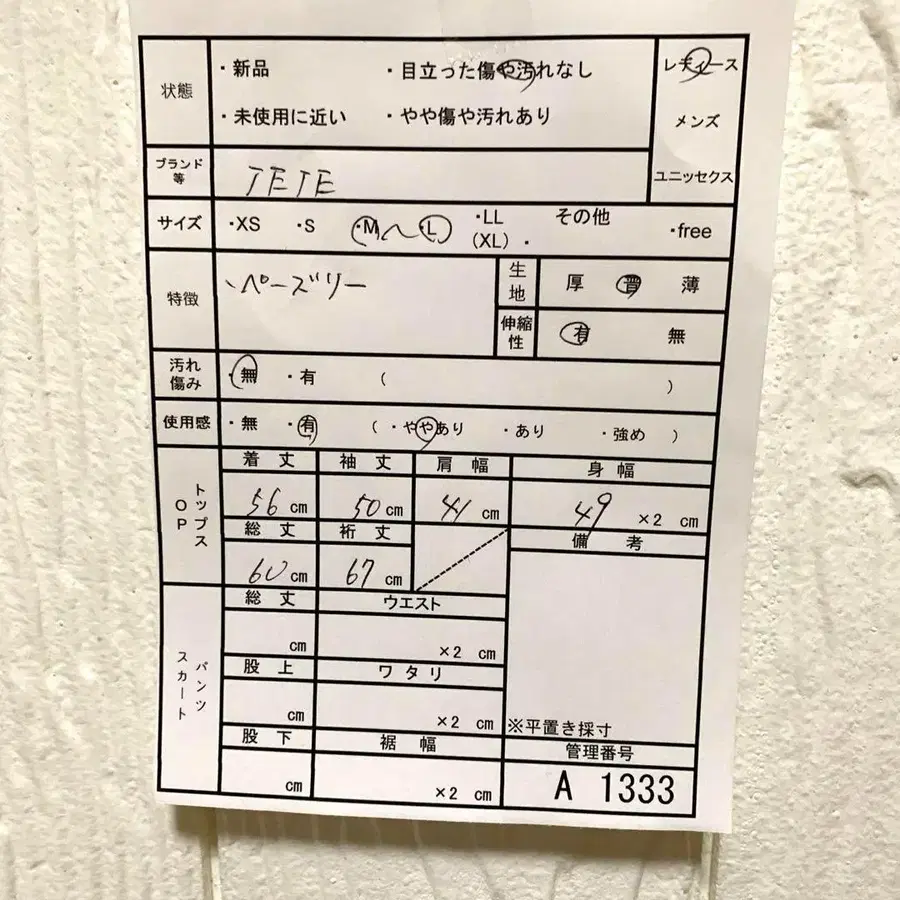 状態
・新品 ・目立った傷や汚れなし
・未使用に近い ・やや傷や汚れあり
レディース
メンズ
ユニッセクス
ブランド
等
TETE
サイズ ・XS ・S ・M〜・L ・LL
(XL)・ その他 ・free
特徴 、ペーズリー
生地 厚 普 薄
伸縮性 有 無
汚れ
傷み ・無 ・有 ( )
使用感 ・無 ・有 (・ややあり ・あり ・強め )
トップス
OP
着丈 袖丈 肩幅 身幅
56 cm 50 cm 41 cm 49 ×2 cm
総丈 裄丈 備考
60 cm 67 cm
パンツ
スカート
総丈 ウエスト
cm ×2 cm
股上 ワタリ
cm ×2 cm
※平置き採寸
股下 裾幅 管理番号
cm ×2 cm A 1333